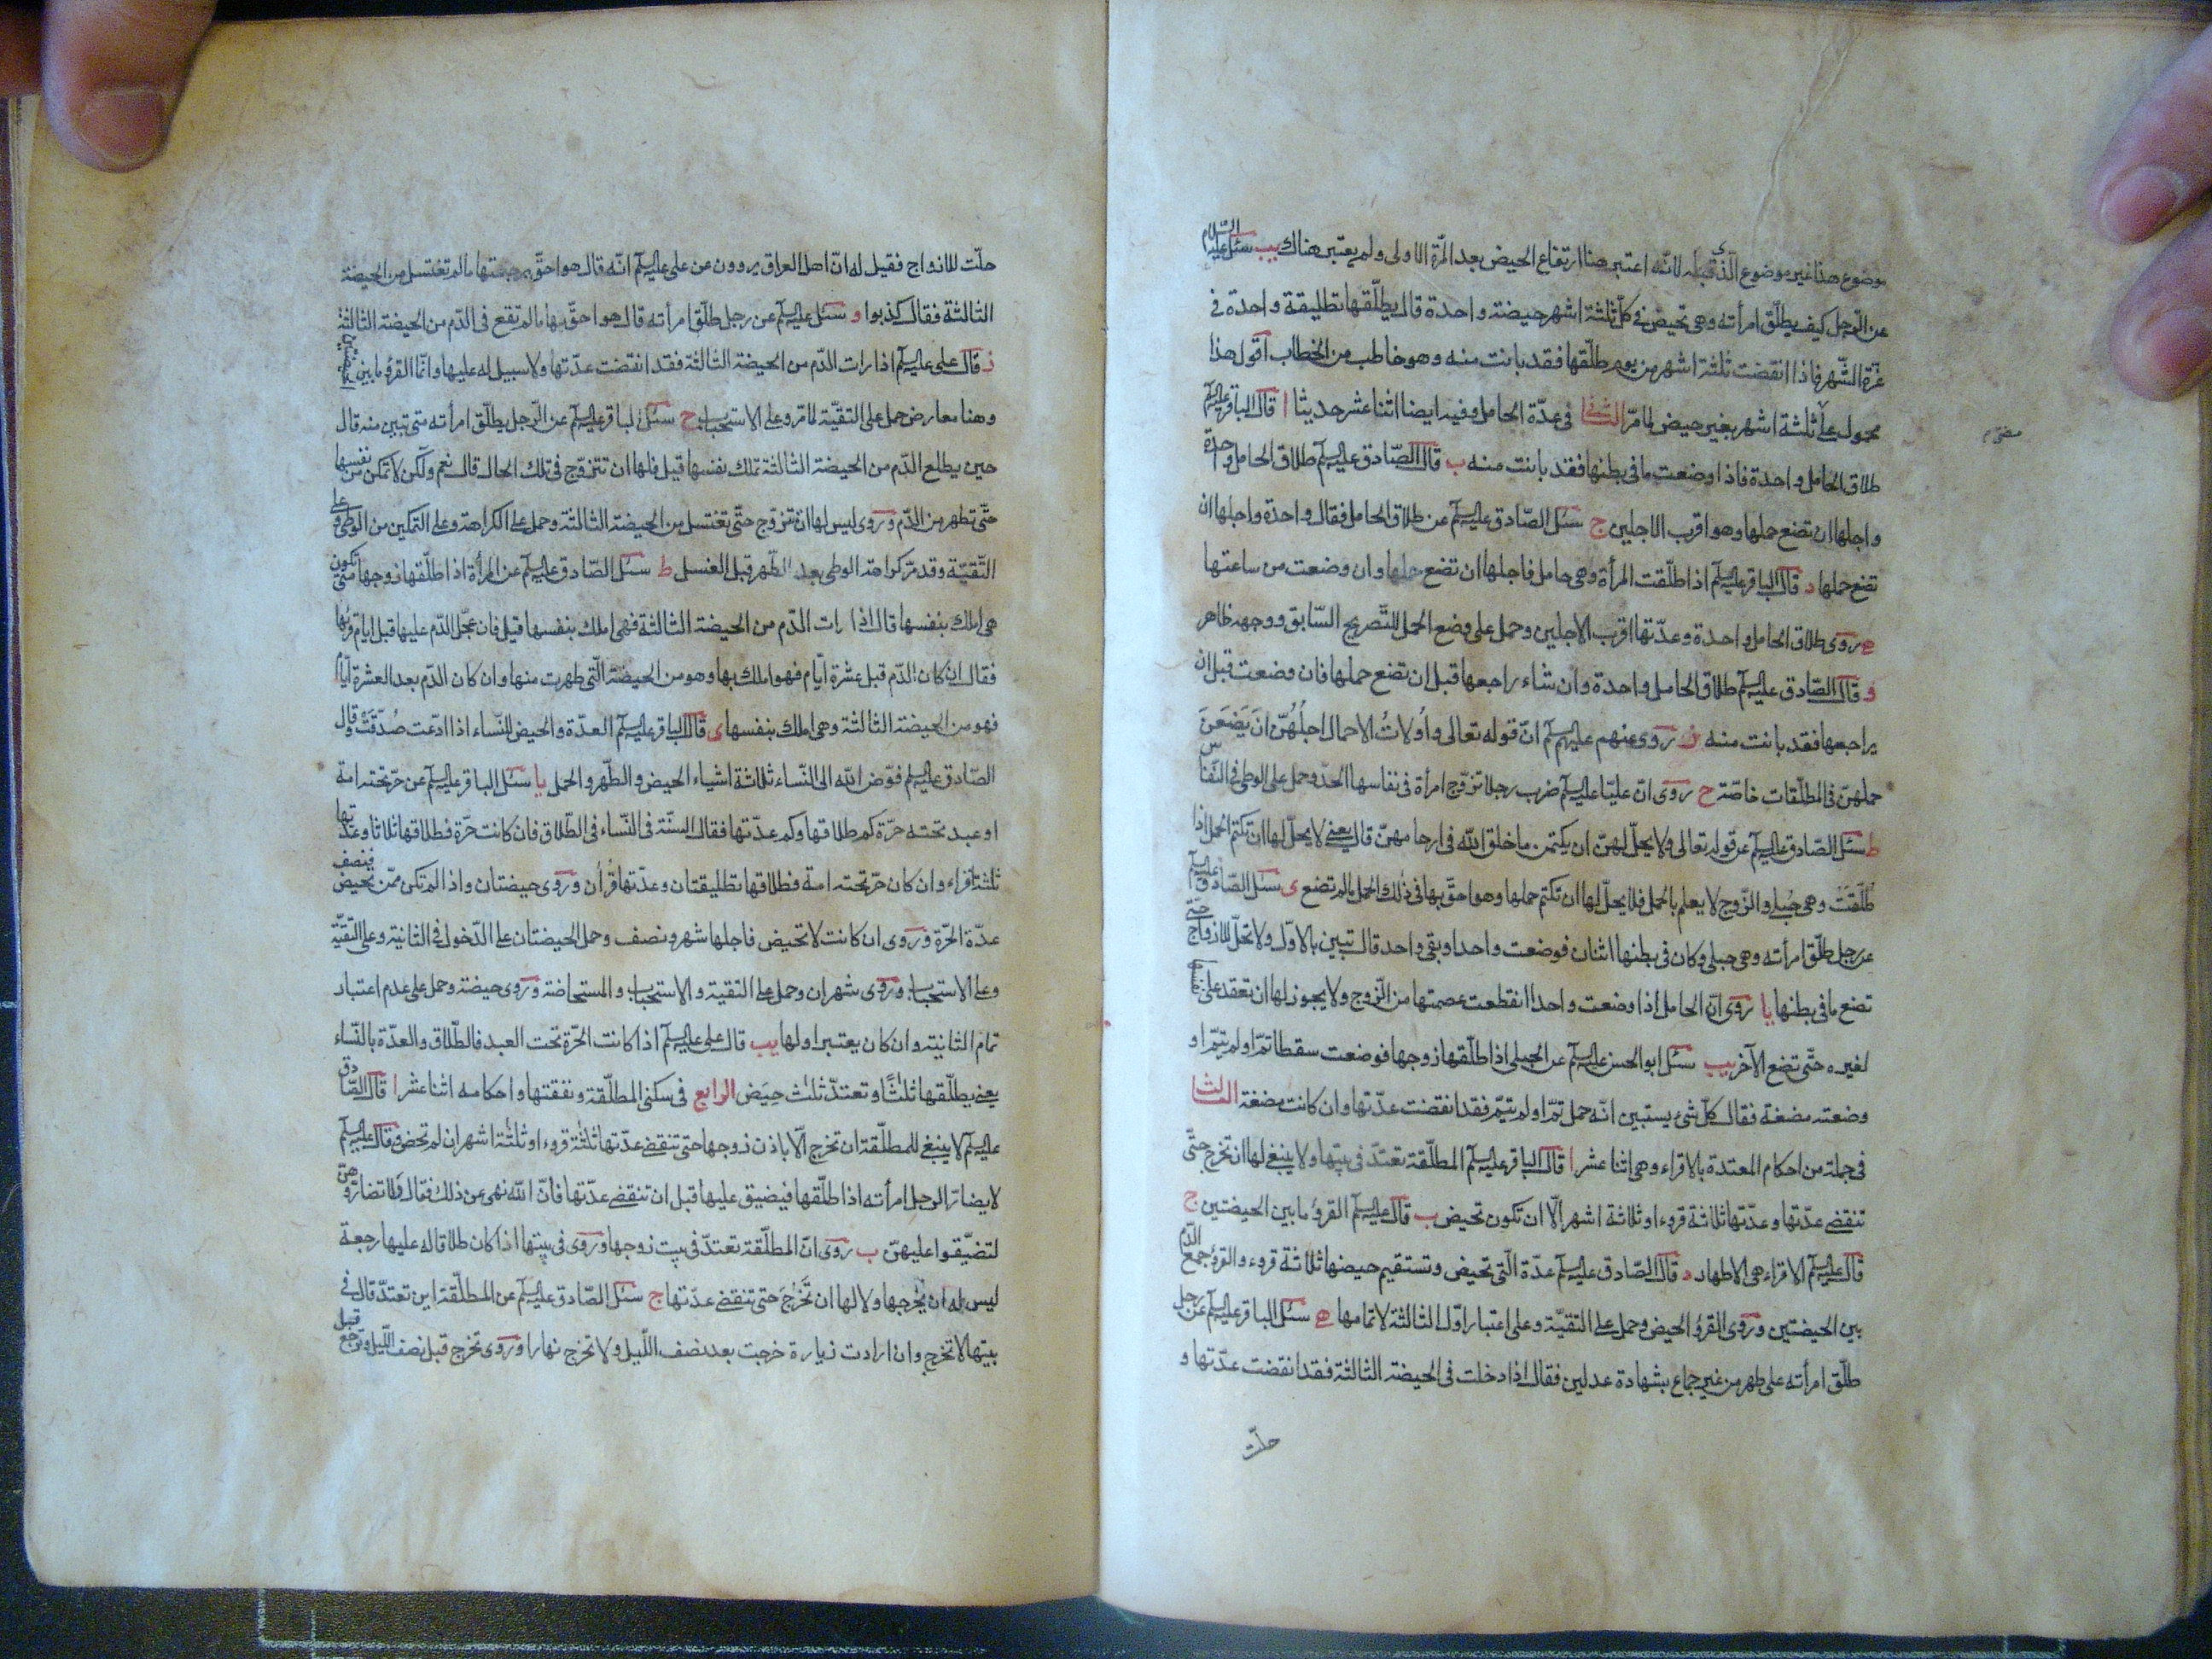 موضوع هذا غير موضوع الذى قبله لانّه اعتبر هنا ارتفاع الحيض بعد المرّة الاولى ولم يعتبر هناك يب سئل عليه السّلام
عن الرّجل كيف يطلّق امرأته وهى تحيض فى كلّ ثلثة اشهر حيضة واحدة قال يطلّقها تطليقة واحدة فى
غرّة الشّهر فاذا انقضت ثلثة اشهر من يوم طلّقها فقد بانت منه وهو خاطب من الخطاب اقول هذا
محمول على ثلثة اشهر بغير حيض لما مرّ الثانى فى عدّة الحامل وفيه ايضا اثنا عشر حديثا ا قال الباقر عليه السلم
طلاق الحامل واحدة فاذا وضعت ما فى بطنها فقد بانت منه ب قال الصّادق عليه السلم طلاق الحامل واحدة
واجلها ان تضع حملها وهو اقرب الاجلين ج سئل الصّادق عليه السلم عن طلاق الحامل فقال واحدة واجلها ان
تضع حملها د قال الباقر عليه السلم اذا طلّقت المرأة وهى حامل فاجلها ان تضع حملها وان وضعت من ساعتها
ه روى طلاق الحامل واحدة وعدّتها اقرب الاجلين وحمل على وضع الحمل للتّصريح السّابق ووجهه ظاهر
و قال الصّادق عليه السلم طلاق الحامل واحدة وان شاء راجعها قبل ان تضع حملها فان وضعت قبل ان
يراجعها فقد بانت منه ز روى عنهم عليهم السلم انّ قوله تعالى واُولاتُ الاحمال اجلُهُنّ انَ يَضَعنَ
حملهنّ فى المطلّقات خاصّة ح روى انّ عليّا عليه السلم ضرب رجلا تزوّج امرأة فى نفاسها الحدّ وحمل على الوطى فى النّفاس
ط سئل الصّادق عليه السلم عن قوله تعالى ولا يحلّ لهنّ ان يكتمن ما خلق الله فى ارحامهنّ قال يعنى لا يحلّ لها ان تكتم الحمل اذا
طُلّقَتَ وهى حبلى والزّوج لا يعلم بالحمل فلا يحلّ لها ان تكتم حملها وهو احقّ بها فى ذلك الحمل ما لم تضع ى سئل الصّادق عليه السلم
عن رجل طلّق امرأته وهى حبلى وكان فى بطنها اثنان فوضعت واحدا وبقى واحد قال تبين بالاوّل ولا تحلّ للازواج حتّى
تضع ما فى بطنها يا روى انّ الحامل اذا وضعت واحدا انقطعت عصمتها من الزّوج ولا يجوز لها ان تعقد على نفسها
لغيره حتّى تضع الآخر يب سئل ابو الحسن عليه السلم عن الحبلى اذا طلّقها زوجها فوضعت سقطا تمّ او لم يتمّ او
وضعته مضغة فقال كلّ شئ يستبين انّه حمل تمّ او لم يتمّ فقد انقضت عدّتها وان كانت مضغة الثالث
فى جملة من احكام المعتدة بالاقراء وهى اثنا عشر ا قال الباقر عليه السلم المطلّقة تعتدّ فى بيتها ولا ينبغى لها ان تخرج حتّى
تنقضى عدّتها وعدّتها ثلاثة قروء او ثلاثة اشهر الّا ان تكون تحيض ب قال عليه السلم القرؤ ما بين الحيضتين ج
قال عليه السلم الاقراء هى الاطهار د قال الصّادق عليه السلم عدّة الّتى تحيض وتستقيم حيضها ثلاثة قروء والقرؤ جمع الدّم
بين الحيضتين وروى القرؤ الحيض وحمل على التقيّة وعلى اعتبار اوّل الثالثة لا تمامها ه سئل الباقر عليه السلم عن رجل
طلّق امرأته على طهر من غير جماع بشهادة عدلين فقال اذا دخلت فى الحيضة الثالثة فقد انقضت عدّتها و
حلّت
حلّت للازواج فقيل له انّ اهل العراق يروون عن على عليه السلم انّه قال هو احقّ برجعتها ما لم تغتسل من الحيضة
الثالثة فقال كذبوا و سئل عليه السلم عن رجل طلّق امرأته قال هو احقّ بها ما لم تقع فى الدّم من الحيضة الثالثة
ز قال على عليه السلم اذا رات الدّم من الحيضة الثالثة فقد انقضت عدّتها ولا سبيل له عليها وانّما القرؤ ما بين الحيضتين
وهنا معارض حمل على التقيّة لما مرّ وعلى الاستحباب ح سئل الباقر عليه السلم عن الرّجل يطلّق امرأته متى تبين منه قال
حين يطلع الدّم من الحيضة الثالثة تملك نفسها قيل فلها ان تتزوّج فى تلك الحال قال نعم ولكن لا تمكن من نفسها
حتّى تطهر من الدّم وروى ليس لها ان تزوّج حتّى تغتسل من الحيضة الثالثة وحمل على الكراهة وعلى التمكين من الوطى وعلى
التّقيّة وقد مرّ كراهة الوطى بعد الطّهر قبل الغسل ط سئل الصّادق عليه السلم عن المرأة اذا طلّقها زوجها متى تكون
هى املك بنفسها قال اذا رات الدّم من الحيضة الثالثة فهى املك بنفسها قيل فان عجّل الدّم عليها قبل ايام قرئها
فقال ان كان الدّم قبل عشرة ايّام فهو املك بها وهو من الحيضة الّتى طهرت منها وان كان الدّم بعد العشرة ايّام
فهو من الحيضة الثالثة وهى املك بنفسها ى قال الباقر عليه السلم العدّة والحيض للنّساء اذا ادّعت صُدّقَتْ وقال
الصّادق عليه السلم فوّض الله الى النّساء ثلاثة اشياء الحيض والطّهر والحمل يا سئل الباقر عليه السلم عن حرّ تحته امة
او عبد تحته حرّة كم طلاقها وكم عدّتها فقال السنّة فى النّساء فى الطّلاق فان كانت حرّة فطلاقها ثلاثا وعدّتها
ثلثة اقراء وان كان حرّ تحته امة فطلاقها تطليقتان وعدّتها قُرأن وروى حيضتان واذا لم تكن ممّن تحيض فنصف
عدّة الحرّة وروى ان كانت لا تحيض فاجلها شهر ونصف وحمل الحيضتان على الدّخول فى الثانية وعلى التقيّة
وعلى الاستحباب وروى شهران وحمل على التقية والاستحباب والمستحاضة وروى حيضة وحمل على عدم اعتبار
تمام الثانية وان كان يعتبر اولها يب قال على عليه السلم اذا كانت الحرّة تحت العبد فالطّلاق والعدّة بالنّساء
يعنى يطلّقها ثلثًا وتعتدّ ثلث حِيَض الرابع فى سكنى المطلّقة ونفقتها واحكامه اثنا عشر ا قال الصّادق
عليه السلم لا ينبغى للمطلّقة ان تخرج الّا باذن زوجها حتى تنقضى عدّتها ثلثة قروء او ثلثة اشهر ان لم تحض وقال عليه السلم
لا يضارّ الرجل امرأته اذا طلّقها فيضيق عليها قبل ان تنقضى عدّتها فانّ الله نهى عن ذلك فقال ولا تضارّوهنّ
لتضيّقوا عليهنّ ب روى انّ المطلّقة تعتدّ فى بيت زوجها وروى فى بيتها اذا كان طلاقا له عليها رجعة
ليس له ان يُخرجها ولا لها ان تَخْرُجَ حتى تنقضى عدّتها ج سئل الصّادق عليه السلم عن المطلّقة اين تعتدّ قال فى
بيتها لا تخرج وان ارادت زيارة خرجت بعد نصف اللّيل ولا تخرج نهارا وروى تخرج قبل نصف اللّيل وترجع قبل